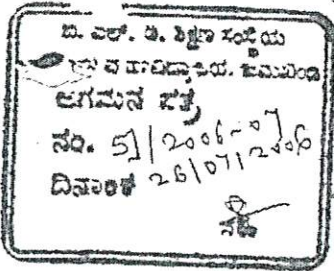 ಬಿ. ಎಲ್. ಡಿ. ಶಿಕ್ಷಣ ಸಂಸ್ಥೆಯ
ವ ಮಹಾವಿದ್ಯಾಲಯ. ಜಮಖಂಡಿ
ಆಗಮನ ಪತ್ರ
ನಂ. 51/2006-07
ದಿನಾಂಕ 26/07/2006
ಸಹಿ